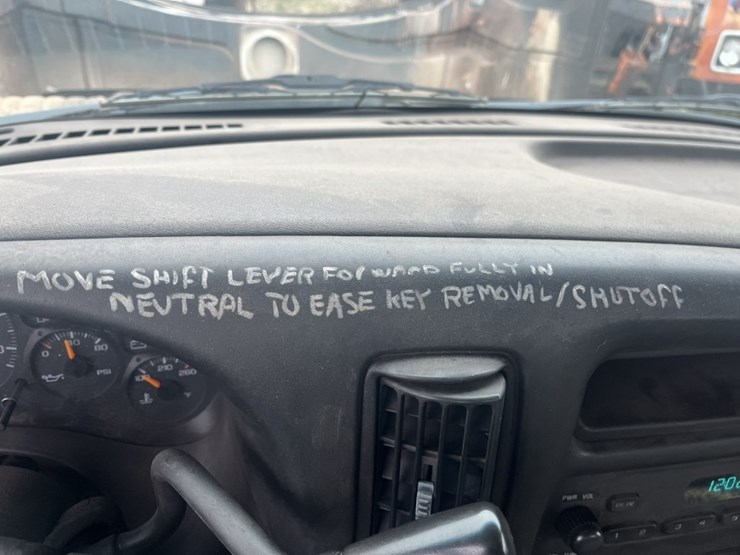 MOVE SHIFT LEVER FORWARD FULLY IN
NEUTRAL TO EASE KEY REMOVAL/SHUTOFF
0 80
PSI
100 210 260
PWR VOL